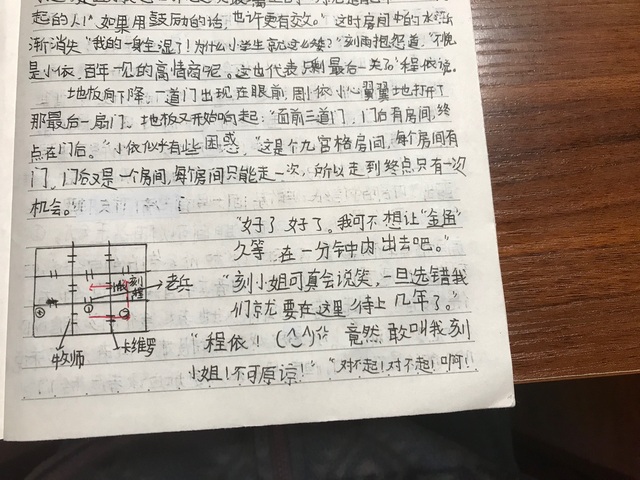 起的人!"如果用鼓励的话,也许更有效。"这时房间中的水流
渐消失"我的身全湿了!为什么小学生就这么矮?"刻雨抱怨道,"不愧
是小依,百年一见的高情商呢。这也代表只剩最后一关了"程依说。
地板向下降,一道门出现在眼前,周小依小心翼翼地打开了
那最后一扇门。地板又开始响起:"面前三道门,门后有房间,终
点在门后。"小依似乎有些困惑,"这是个九宫格房间,每个房间有
门,门后又是一个房间,每个房间只能走一次,所以走到终点只有一次
机会。"
"好了好了。我可不想让"金通"
久等,在一分钟内出去吧。"
"刻小姐可真会说笑,一旦选错我
们京尤要在这里待上几年了。"
"程依!(^^)你竟然敢叫我刻
小姐!不可原谅!""对不起!对不起!啊!"
刻
程
老兵
牧师
卡维罗